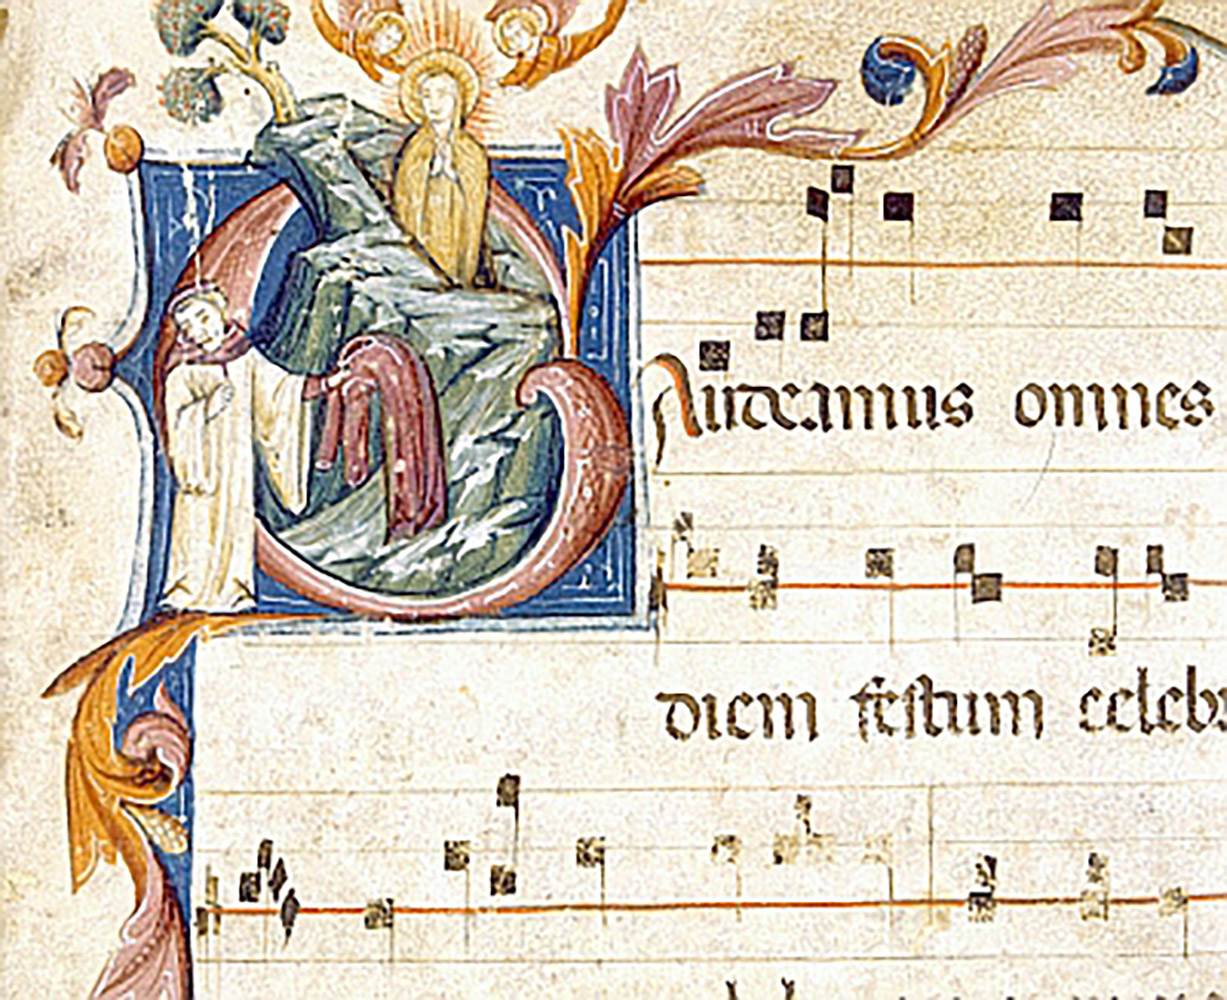 Audeamus omnes
diem festum celeb